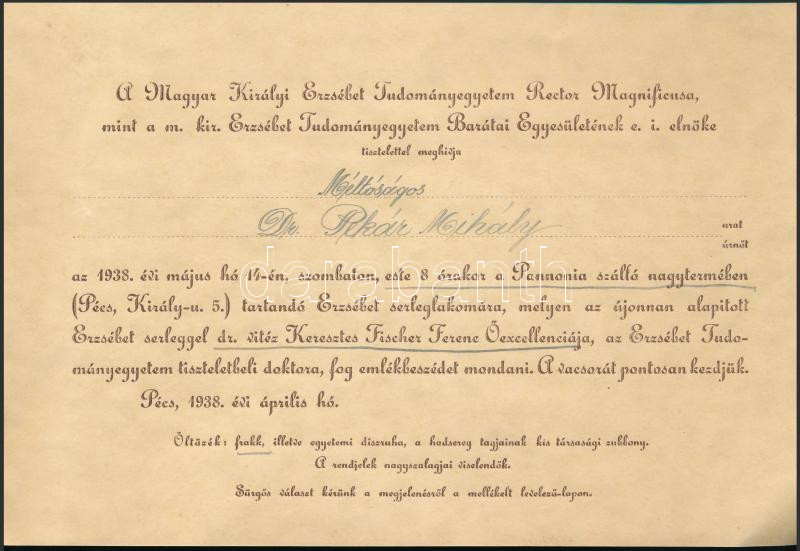 A Magyar Királyi Erzsébet Tudományegyetem Rector Magnificusa,
mint a m. kir. Erzsébet Tudományegyetem Barátai Egyesületének e. i. elnöke
tisztelettel meghivja
Méltóságos
Dr. Pekár Mihály urat
úrnőt
az 1938. évi május hó 14-én, szombaton, este 8 órakor a Pannonia szálló nagytermében
(Pécs, Király-u. 5.) tartandó Erzsébet serleglakomára, melyen az újonnan alapitott
Erzsébet serleggel dr. vitéz Keresztes Fischer Ferenc Őexcellenciája, az Erzsébet Tudo-
mányegyetem tiszteletbeli doktora, fog emlékbeszédet mondani. A vacsorát pontosan kezdjük.
Pécs, 1938. évi április hó.
Öltözék: frakk, illetve egyetemi diszruha, a hadsereg tagjainak kis társasági zubbony.
A rendjelek nagyszalagjai viselendők.
Sürgős választ kérünk a megjelenésről a mellékelt levelező-lapon.
darabanth